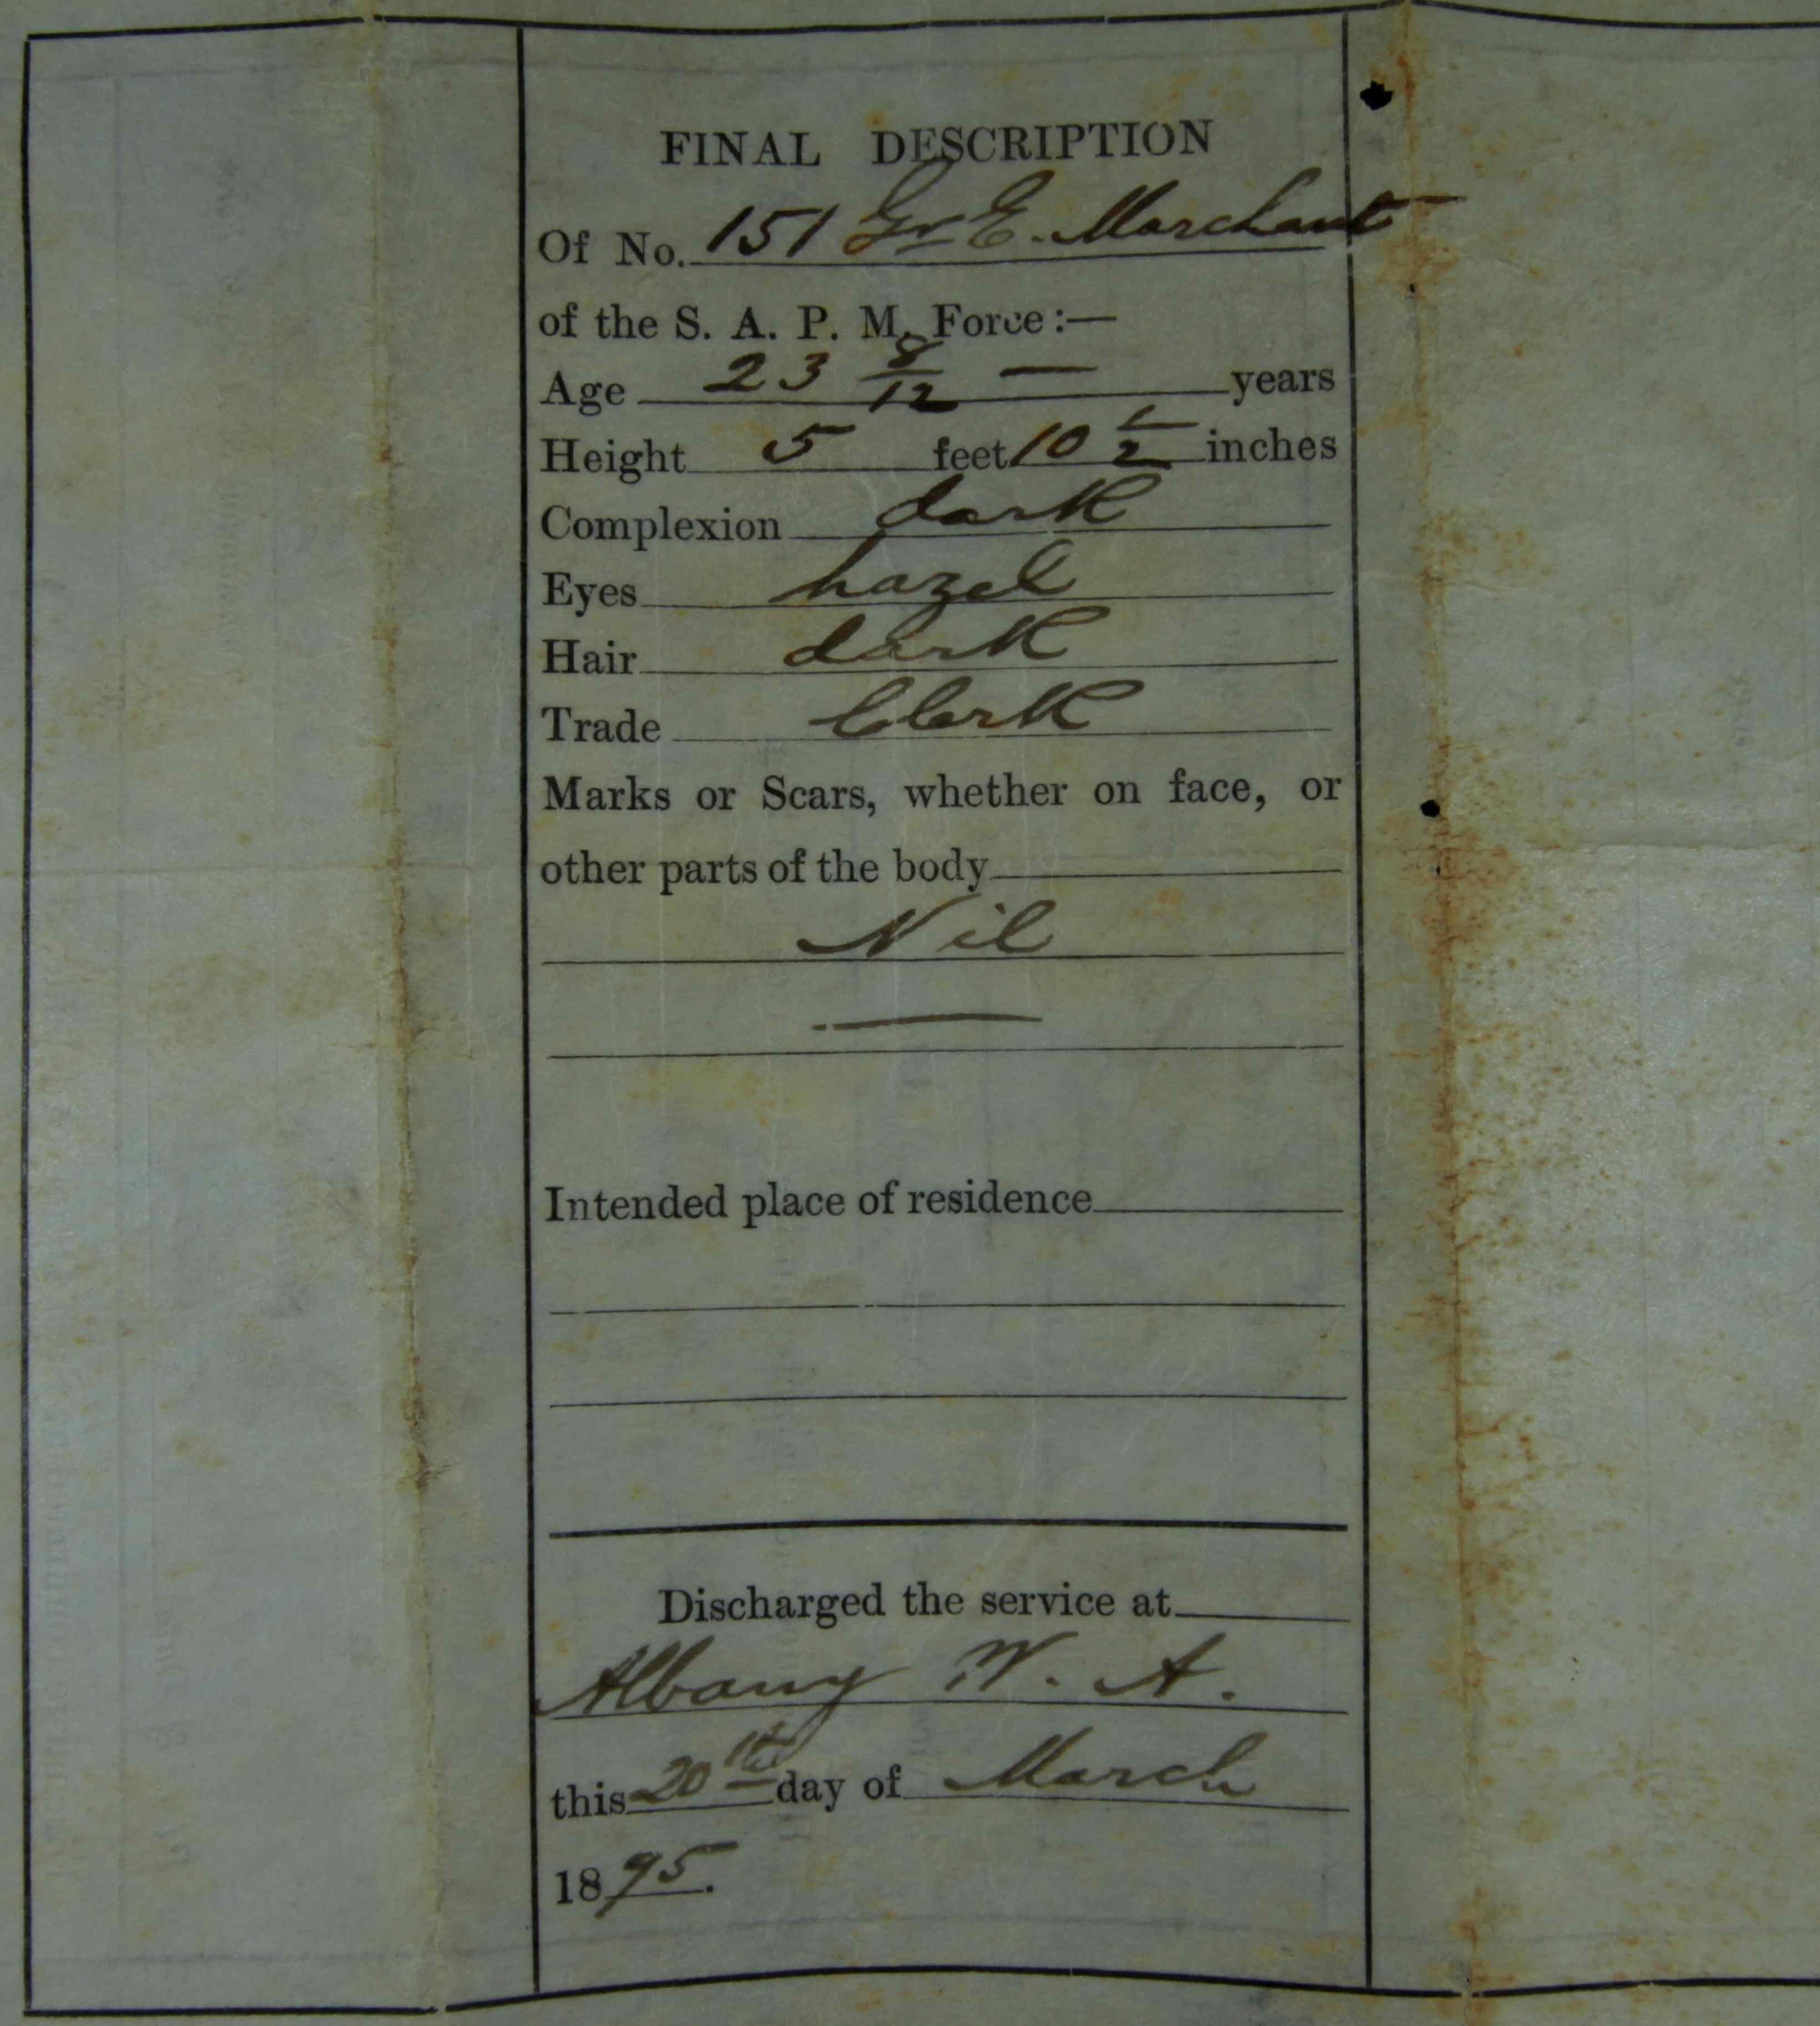 FINAL DESCRIPTION
Of No. 151 Gr E. Marchant
of the S. A. P. M. Force:—
Age 23 8/12 — years
Height 5 feet 10 1/2 inches
Complexion dark
Eyes hazel
Hair dark
Trade Clerk
Marks or Scars, whether on face, or
other parts of the body
Nil
—
Intended place of residence
Discharged the service at
Albany W. A.
this 20th day of March
1895.